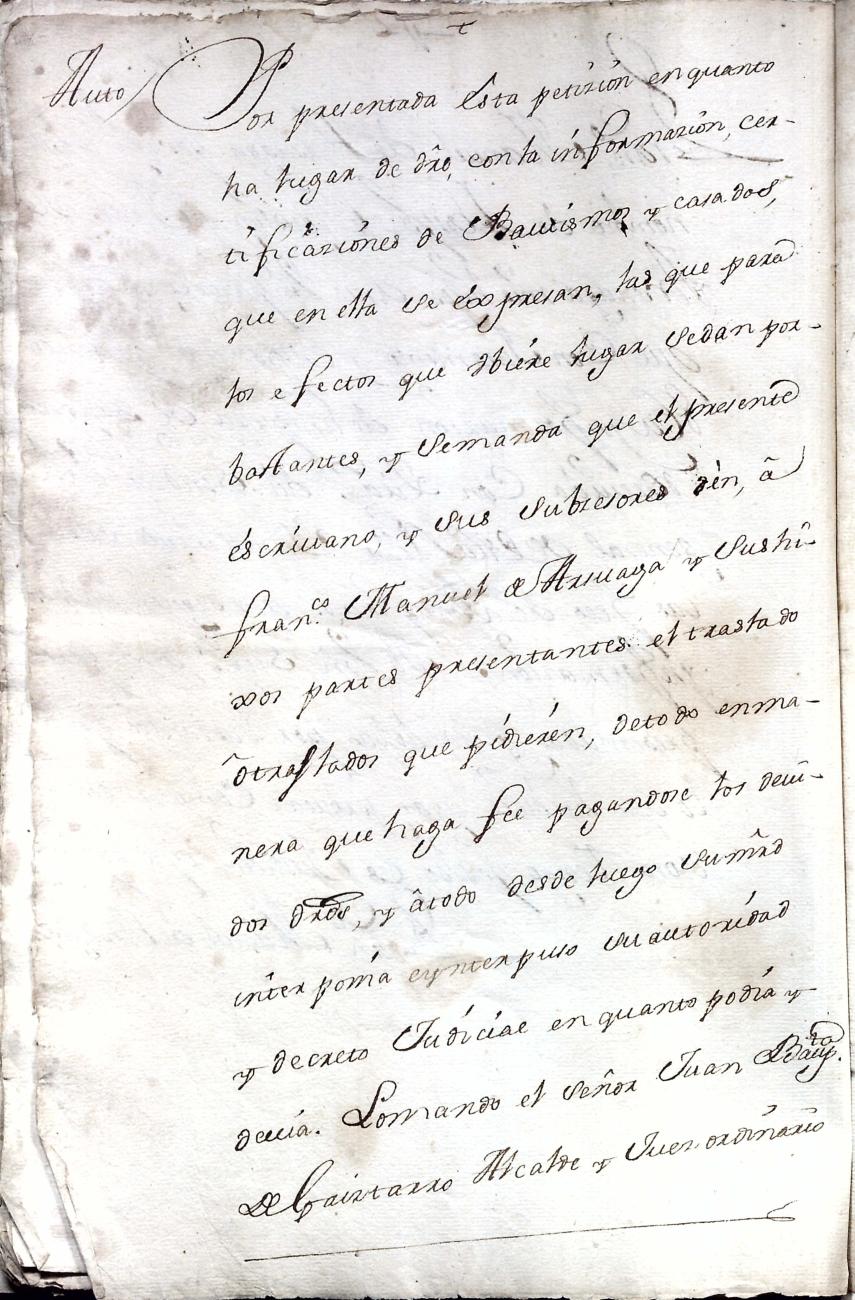 +
Auto / Por presentada ésta petizión enquanto
ha lugar de dro, con la informazión, cer-
tificaziónes de Bautismos y casados,
que en ella se éxpresan, las que para
los efectos que óbiére lugar sedan por-
bastantes, y semanda que el presente
éscriuano, y sus subzesores dén, â
fran.co Manuel de Arsuaga y sus hi-
xos partes presentantes el traslado
ô traslados que pidierén, detodo enma-
nera que haga fee pagandose los deui-
dos drõs, y âtodo desde luego sumrd
interponía eynterpuso suautoridad
y decreto Judiciae enquanto podía y
deuía. Lomando el señor Juan Baup.ta
de Gaiztarro Alcalde y Juez ordinário